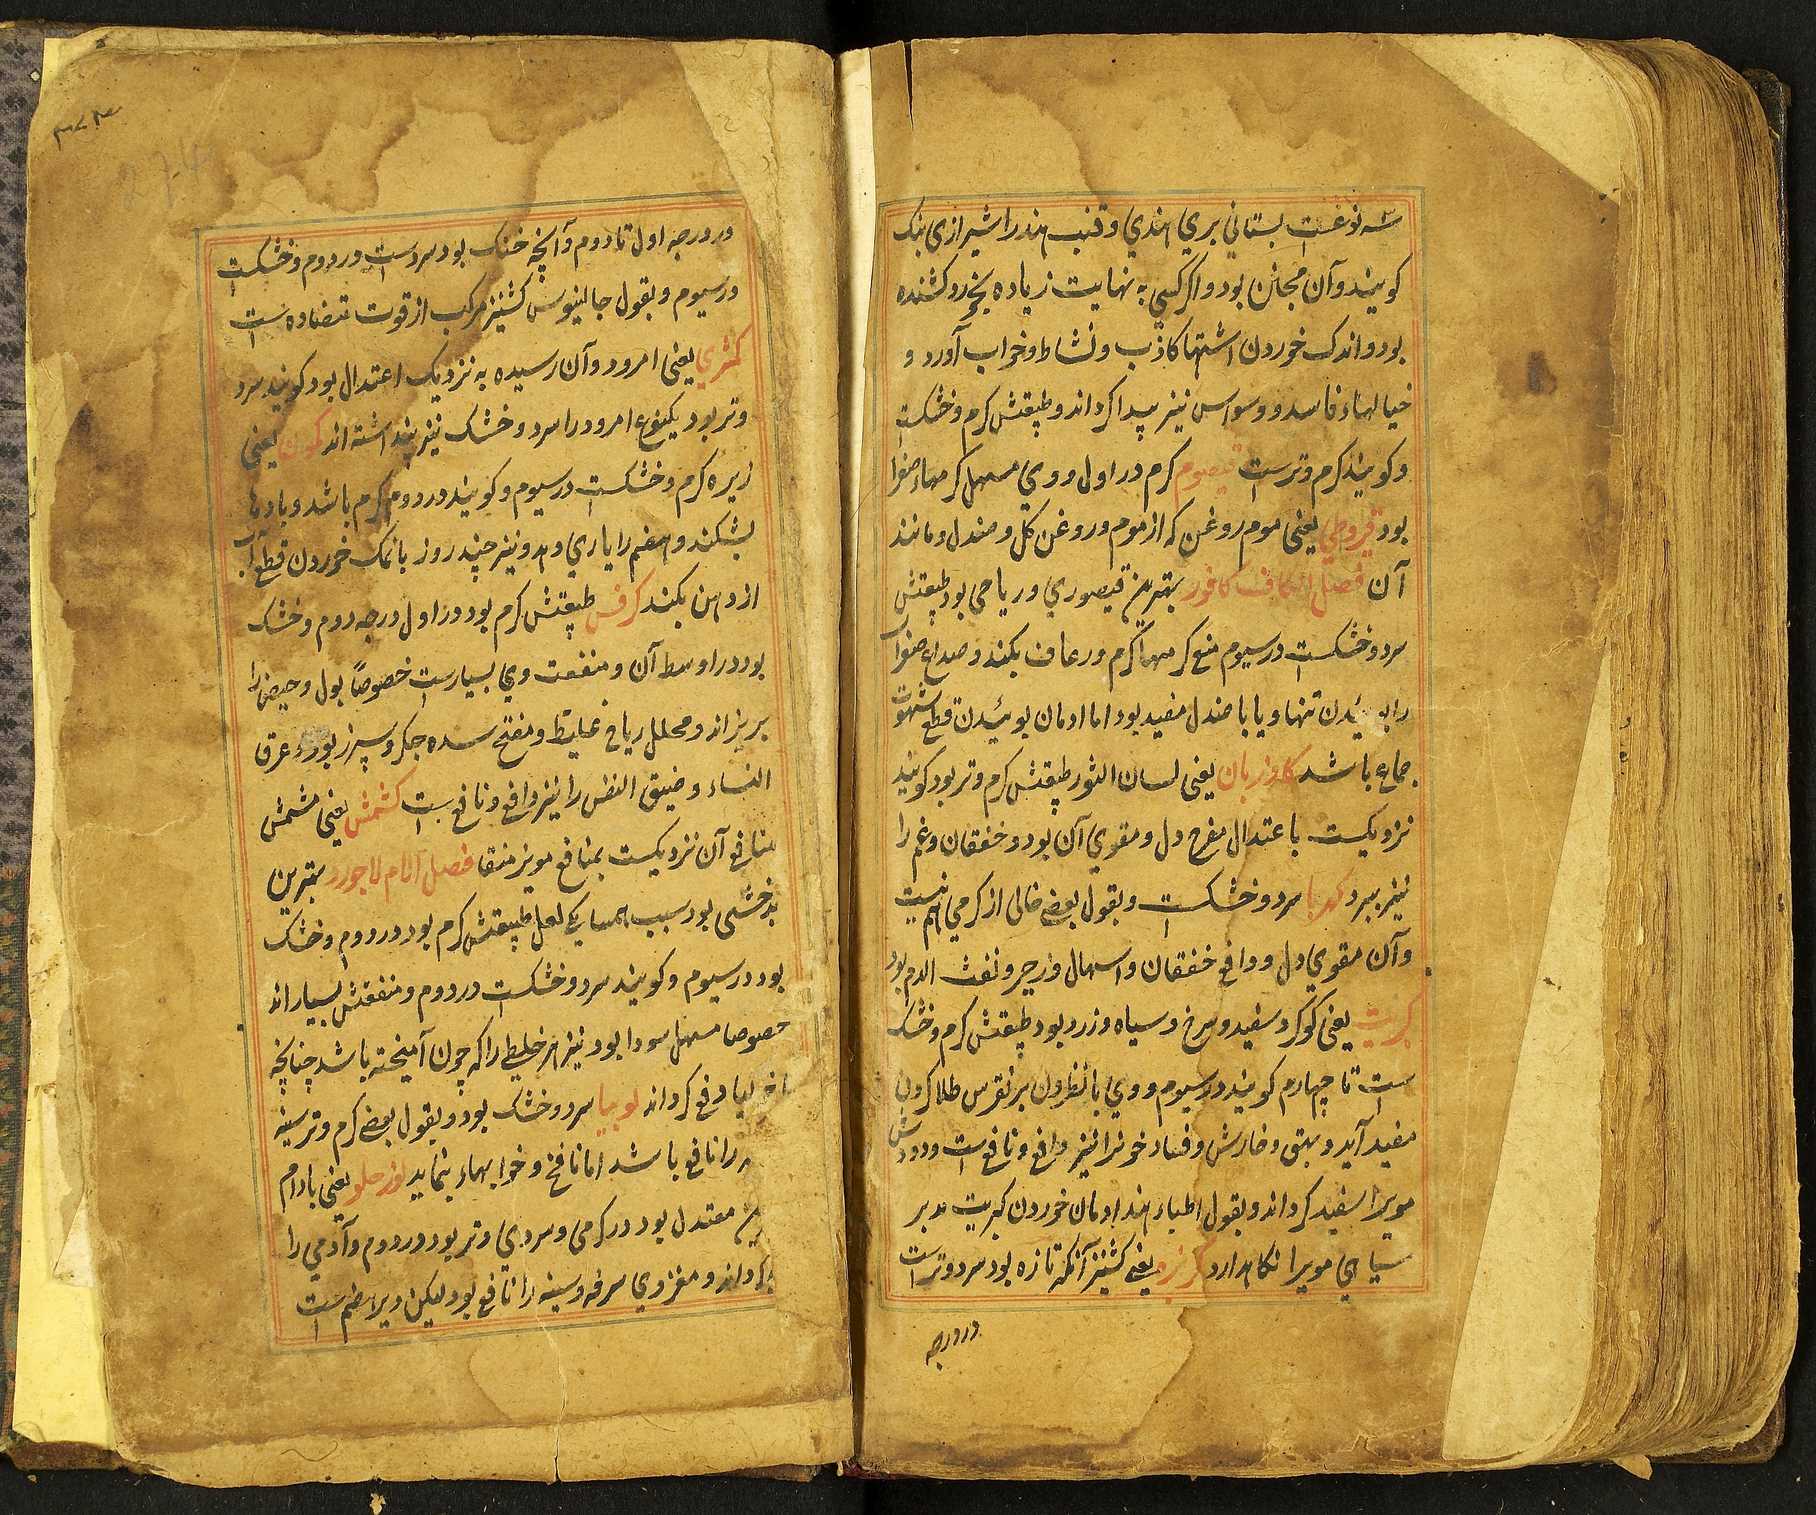 سه نوعست بستاني بري هندي و قنب هندرا شيرازي بنک
کويند و آن مجنن بود و اگر کسي به نهايت زياده بخورد کشنده
بود و اندک خوردن اشتهاء کاذب و نشاط و خواب آورد و
خيالهاء فاسد و وسواس نيز پيدا کرداند و طبيعتش کرم و خشکست
و کويند کرم و ترست قيصوم کرم در اول و وي مسهل کرمهاء صفرا
بود قيروطي يعني موم روغن که از موم و روغن کل و صندل و مانند
آن فصل الکاف کافور بهترين قيصوري و رياحي بود طبيعتش
سرد و خشکست در سيوم منع کرمهاء کرم و رعاف بکند و صداع صفراء
را بوئيدن تنها و يا با صندل مفيد بود اما ادمان بوئيدن قطع شهوت
جماع باشد کاوزبان يعني لسان الثور طبيعتش کرم و تر بود کويند
نزديکست باعتدال مفرح دل و مقوي آن بود و خفقان و غم را
نيز ببرد کهربا سرد و خشکست و بقول بعضے خالي از کرمي هم نيست
و آن مقوي دل و دافع خفقان و اسهال و زحير و نفث الدم بود
کبريت يعني کوکرد سفيد و سرخ و سياه و زرد بود طبيعتش کرم و خشک
ست تا چهارم کويند در سيوم و وي با نطرون بر نقرس طلا کردن
مفيد آيد و بهق و خارش و فساد خونرا نيز دافع و نافع است و دودش
مويرا سفيد کرداند و بقول اطباء هند ادمان خوردن کبريت مدبر
سياهي مويرا نکاه دارد کزبره يعنے کشنيز آنکه تازه بود سرد و ترست
در درجه
۲۷۴
274
در درجه اول تا دوم و آنچه خشک بود سردست در دوم و خشکست
در سيوم و بقول جالينوس کشنيز مرکب از قوت متضاده است
کمثري يعني امرود و آن رسيده به نزديک اعتدال بود کويند سرد
و تر بود يکنوع امرود را سرد و خشک نيز پنداشته اند کمون يعني
زيره کرم و خشکست در سيوم و کويند در دوم کرم باشد و بادها
بشکند و هضم را ياري دهد و نيز چند روز با نمک خوردن قطع آب
از دهن بکند کرفس طبيعتش کرم بود در اول درجه دوم و خشک
بود در اوسط آن و منفعت وي بسيارست خصوصاً بول و حيض را
بريزاند و محلل رياح غليظ و مفتح سده جکر و سپرز بود و عرق
النساء و ضيق النفس را نيز دافع و نافع ست کشمش يعني مشمش
منافع آن نزديکست بمنافع مويز منقا فصل اللام لاجورد بهترين
بدخشي بود سبب همسايکے لعل طبيعتش کرم بود در دوم و خشک
بود در سيوم و کويند سرد و خشکست در دوم و منفعتش بسيار اند
خصوصا مسهل سودا بود نيز هر خليط را که چون آميخته باشد چنانچه
دفع کرداند لوبيا سرد و خشک بود و بقول بعضے کرم و تر سينه
را نافع باشد اما نافخ و خوابهاء بنمايد لوز حلو يعني بادام
معتدل بود در کرمي و سردي و تر بود در دوم و آدمي را
کرداند و مغز وي سرفه و سينه را نافع بود ليکن دير هضم است